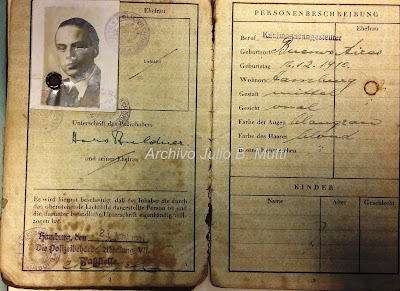 Ehefrau
Unterschrift des Paßinhabers
Hans
und seiner Ehefrau
Es wird hiermit bescheinigt, daß der Inhaber die durch
das obenstehende Lichtbild dargestellte Person ist und
die darunter befindliche Unterschrift eigenhändig voll-
zogen hat.
Hamburg, den
Die Polizeibehörde, Abteilung
Paßstelle
PERSONENBESCHREIBUNG
Ehefrau
Beruf
Geburtsort Buenos Aires
Geburtstag 12. 1910.
Wohnort Hamburg
Gestalt mittel
Gesicht oval
Farbe der Augen blaugrau
Farbe des Haares blond
KINDER
Name Alter Geschlecht
Archivo Julio B. Mutti